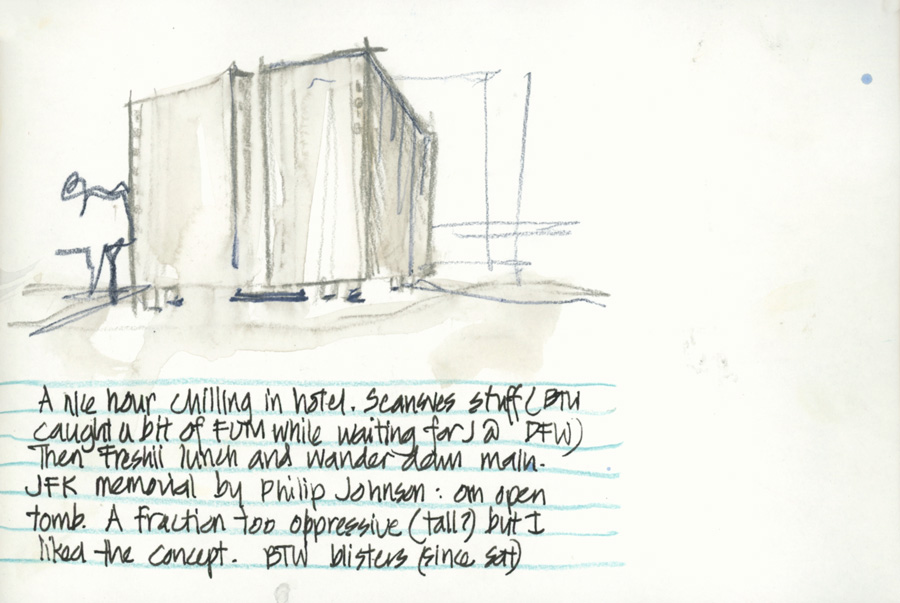 A nice hour chilling in hotel. stuff (BTW
caught a bit of while waiting for J @ DFW)
Then Freshii lunch and wander down main.
JFK memorial by Philip Johnson: an open
tomb. A fraction too oppressive (tall?) but I
liked the concept. BTW blisters (since sat)